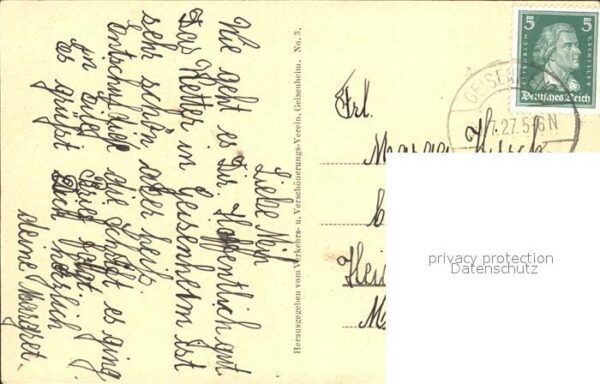 Liebe
Wie geht es Dir. Hoffentlich gut
Das Wetter in Geisenheim ist
sehr schön aber heiß.
Entschuldige die Schrift es ging
in Eile. Brief folgt
es grüßt Dich herzlich
deine Margret.
Herausgegeben vom Verkehrs- u. Verschönerungs-Verein, Geisenheim. No. 3.
5 5
FRIEDRICH V. SCHILLER
Deutsches Reich
GEISEN
7.27.5-6N
Frl.
privacy protection
Datenschutz